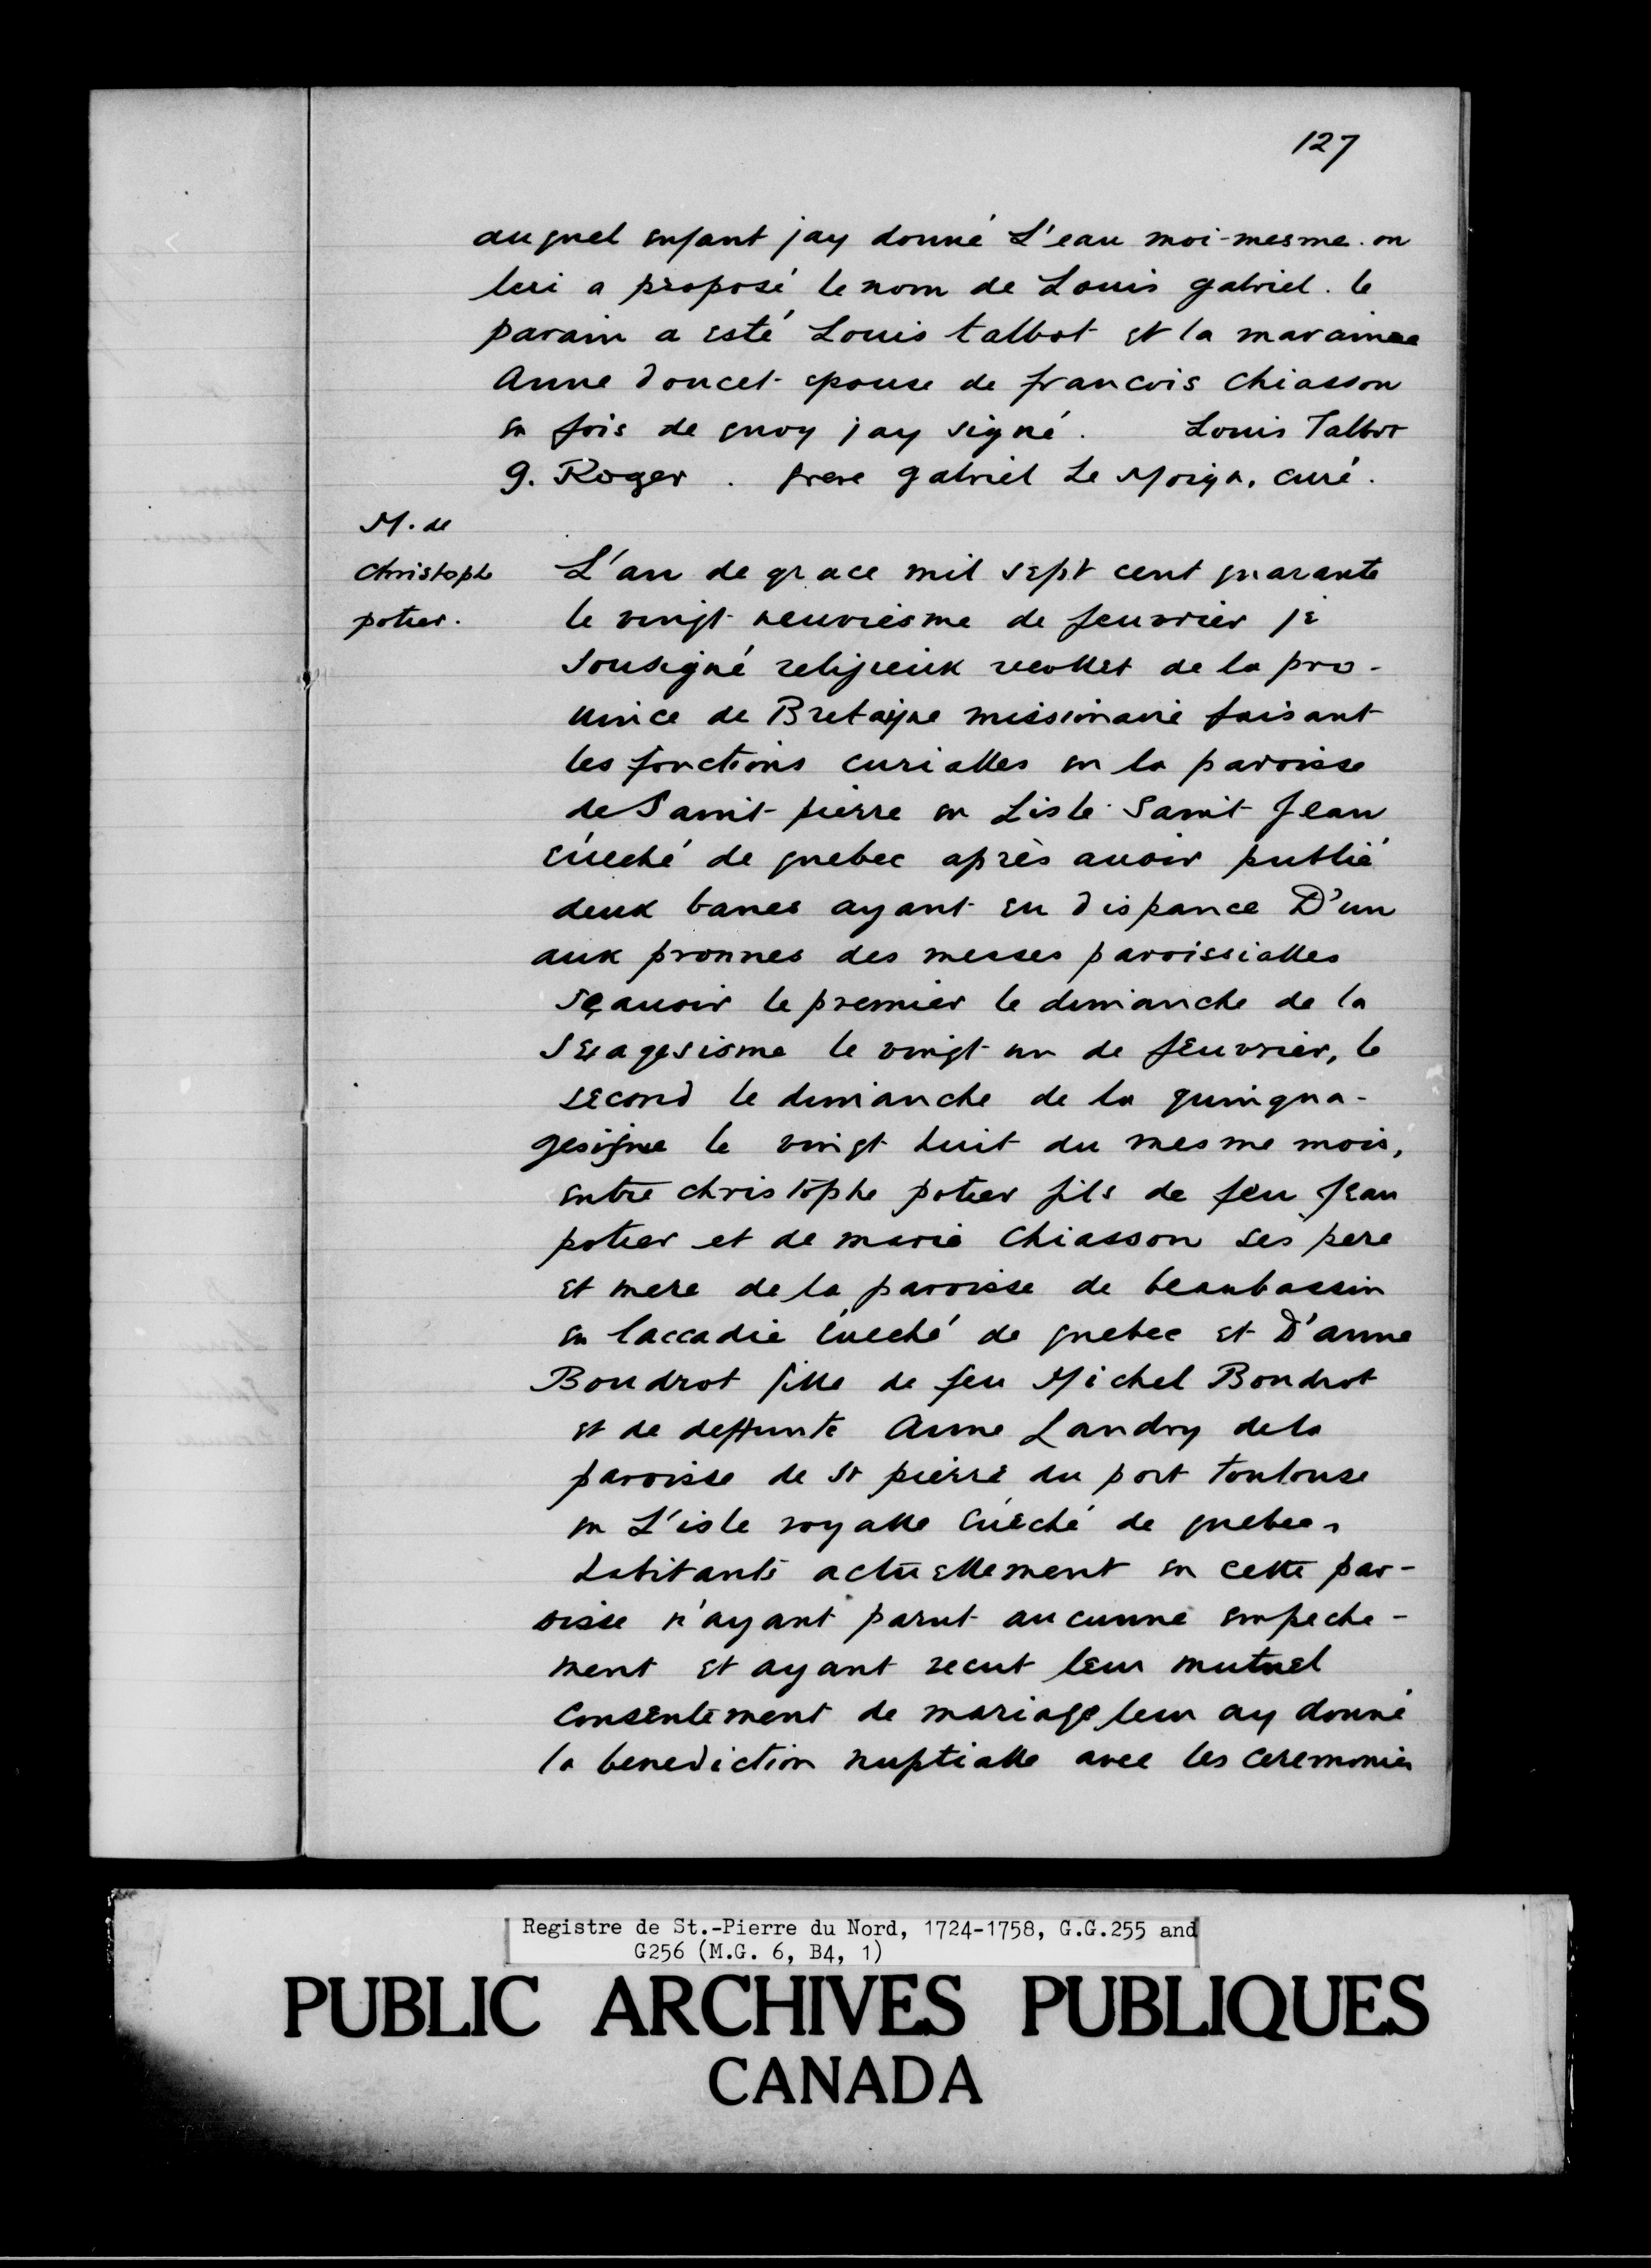 127
auquel enfant jay donné L'eau moi-mesme. on
lui a proposé le nom de Louis gabriel. le
parain a esté Louis talbot et la maraine
Anne doucet epouse de francois chiasson
en fois de quoy jay signé. Louis Talbot
g. Roger. frere gabriel Le Moign, curé.
M. de
christophe
potier.
L'an de grace mil sept cent quarante
le vingt neuviesme de feuvrier je
sousigné religieux recollet de la pro-
uince de Bretaigne missionaire faisant
les fonctions curialles en la paroisse
de Saint pierre en Lisle Saint Jean
éueché de quebec après auoir publié
deux banes ayant eu dispance D'un
aux pronnes des messes paroissialles
sçauoir le premier le dimanche de la
Sexagesisme le vingt un de feuvrier, le
second le dimanche de la quinqua-
gesisme le vingt huit du mesme mois,
entre christophe potier fils de feu Jean
potier et de marie Chiasson ses pere
et mere de la paroisse de beaubassin
en laccadie éueché de quebec et D'anne
Boudrot fille de feu Michel Boudrot
et de deffunte Anne Landry de la
paroisse de St pierre du port toulouse
en L'isle royalle éueché de quebec,
habitants actuellement en cette par-
oisse n'ayant parut aucunne empeche-
ment et ayant recut leur mutuel
consentement de mariage leur ay donné
la benediction nuptialle avec les ceremonies
Registre de St.-Pierre du Nord, 1724-1758, G.G.255 and
G256 (M.G. 6, B4, 1)
PUBLIC ARCHIVES PUBLIQUES
CANADA